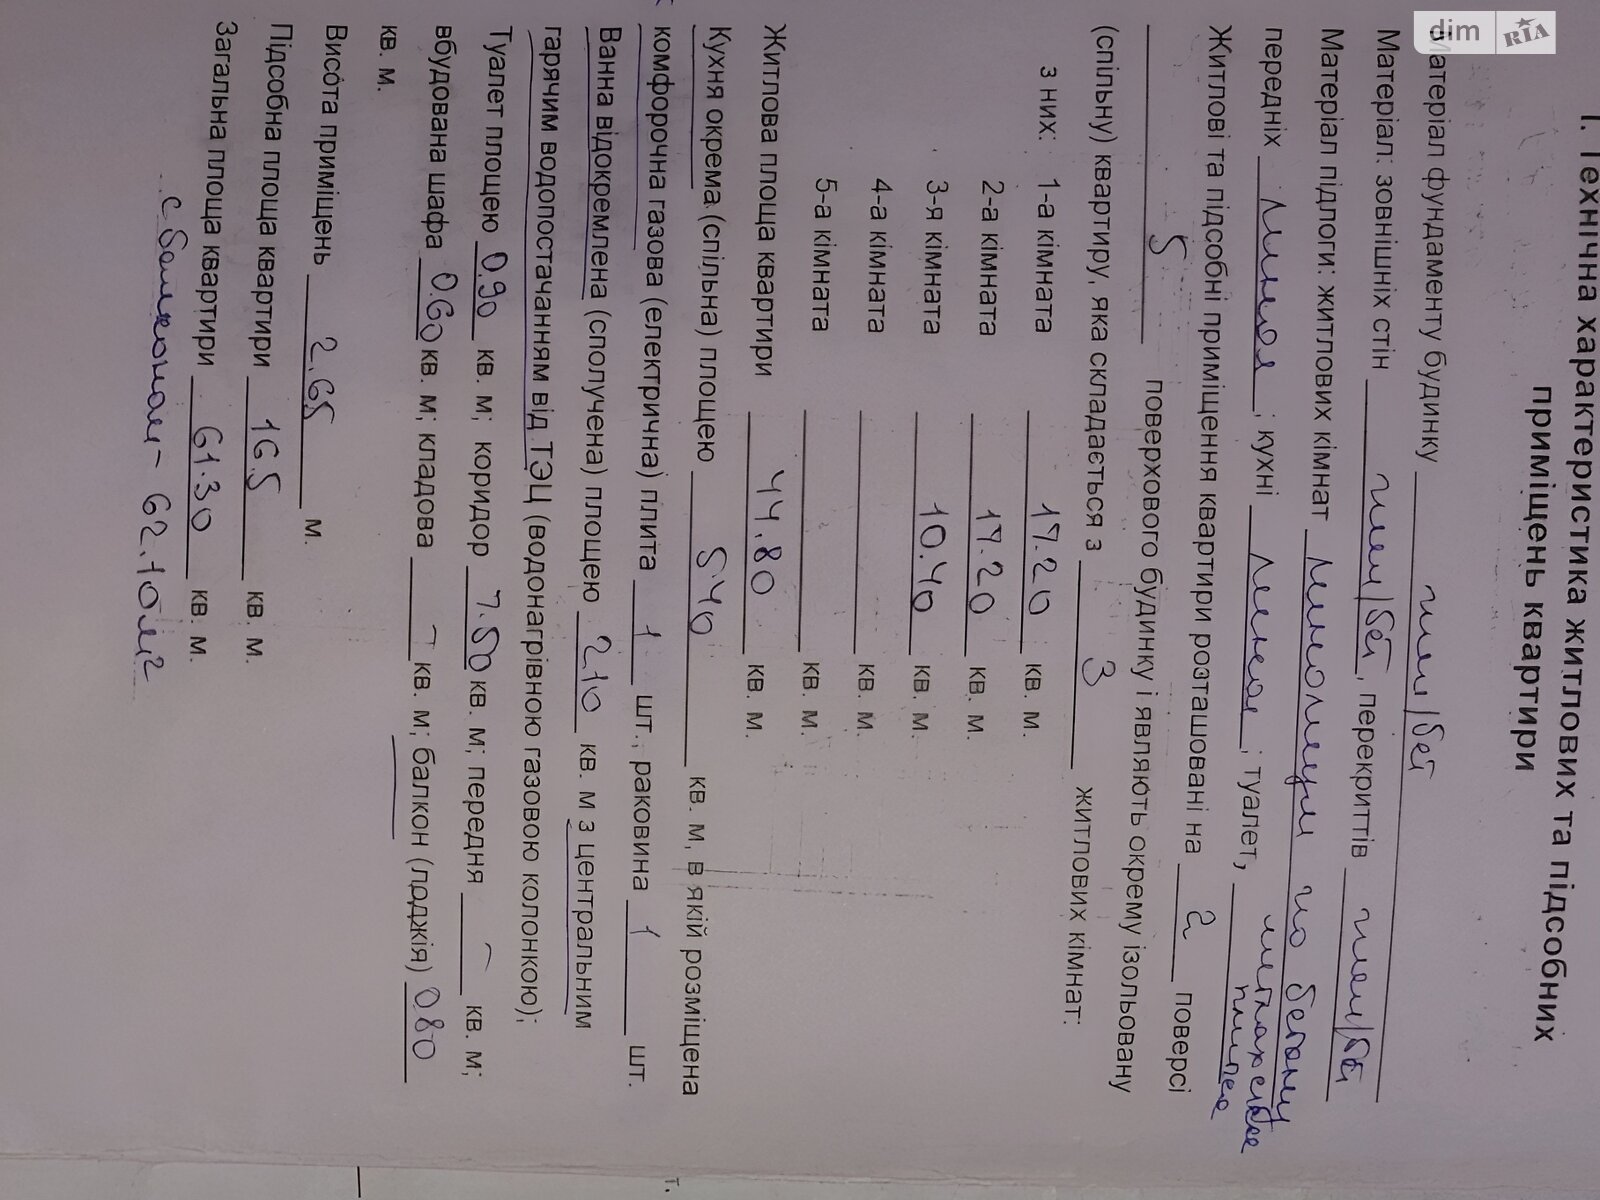 dim RIA
І. Технічна характеристика житлових та підсобних
приміщень квартири
Матеріал фундаменту будинку
Матеріал: зовнішніх стін , перекриттів
Матеріал підлоги: житлових кімнат по бетону
передніх ; кухні ; туалет,
Житлові та підсобні приміщення квартири розташовані на 2 поверсі
5 поверхового будинку і являють окрему ізольовану
(спільну) квартиру, яка складається з 3 житлових кімнат:
з них: 1-а кімната 17.20 кв. м.
2-а кімната 17.20 кв. м.
3-я кімната 10.40 кв. м.
4-а кімната кв. м.
5-а кімната кв. м.
Житлова площа квартири 44.80 кв. м.
Кухня окрема (спільна) площею 5.40 кв. м, в якій розміщена
комфорочна газова (електрична) плита 1 шт., раковина 1 шт.
Ванна відокремлена (сполучена) площею 2.10 кв. м з центральним
гарячим водопостачанням від ТЭЦ (водонагрівною газовою колонкою);
Туалет площею 0.90 кв. м; коридор 7.50 кв. м; передня – кв. м;
вбудована шафа 0.60 кв. м; кладова – кв. м; балкон (лоджія) 0.80
кв. м.
Висота приміщень 2.65 м.
Підсобна площа квартири 16.5 кв. м.
Загальна площа квартири 61.30 кв. м.
с балконом - 62.10 м2
т.